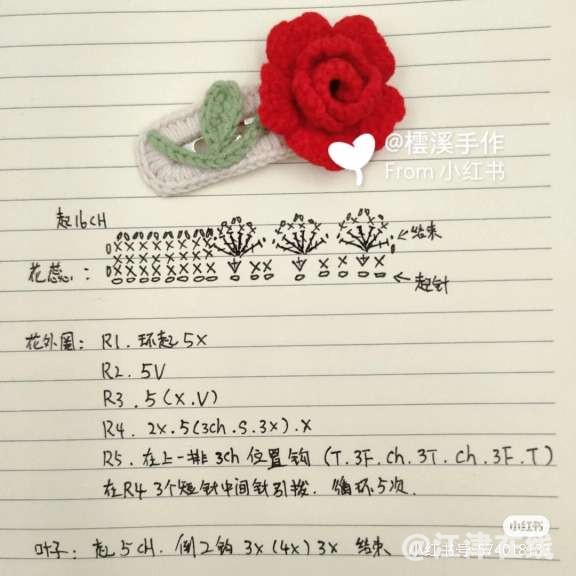 @橒溪手作
From 小红书
起16CH
←结束
花蕊:
←起针
花外围: R1. 环起5X
R2. 5V
R3. 5(X.V)
R4. 2X.5(3ch.S.3X).X
R5. 在上一排3ch位置钩(T.3F.ch.3T.ch.3F.T)
在R4 3个短针中间针引拨. 循环5次.
小红书
叶子: 起5CH. 倒2钩 3X(4X)3X 结束
@江津在线